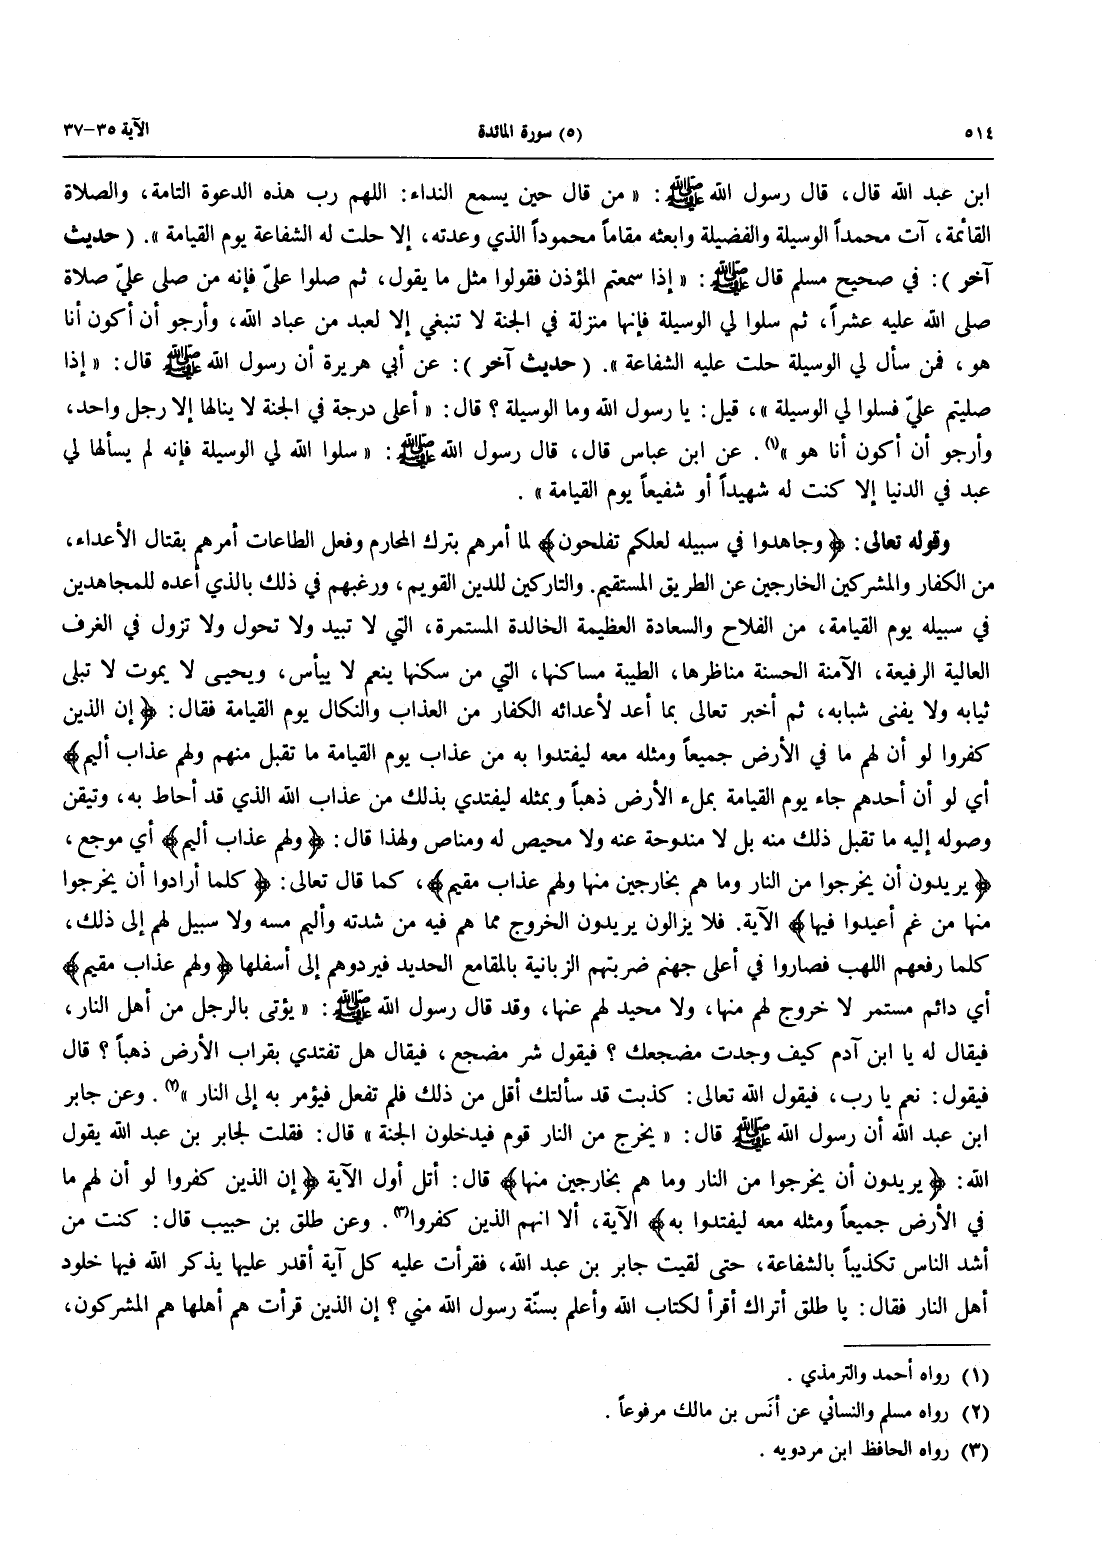 ٥١٤ (٥) سورة المائدة الآية ٣٥-٣٧
ابن عبد الله قال، قال رسول الله ﷺ: « من قال حين يسمع النداء: اللهم رب هذه الدعوة التامة، والصلاة
القائمة، آت محمداً الوسيلة والفضيلة وابعثه مقاماً محموداً الذي وعدته، إلا حلت له الشفاعة يوم القيامة ». ( حديث
آخر ): في صحيح مسلم قال ﷺ: « إذا سمعتم المؤذن فقولوا مثل ما يقول، ثم صلوا عليّ فإنه من صلى عليّ صلاة
صلى الله عليه عشراً، ثم سلوا لي الوسيلة فإنها منزلة في الجنة لا تنبغي إلا لعبد من عباد الله، وأرجو أن أكون أنا
هو، فمن سأل لي الوسيلة حلت عليه الشفاعة ». ( حديث آخر ): عن أبي هريرة أن رسول الله ﷺ قال: « إذا
صليتم عليّ فسلوا لي الوسيلة »، قيل: يا رسول الله وما الوسيلة ؟ قال: « أعلى درجة في الجنة لا ينالها إلا رجل واحد،
وأرجو أن أكون أنا هو »(١). عن ابن عباس قال، قال رسول الله ﷺ: « سلوا الله لي الوسيلة فإنه لم يسألها لي
عبد في الدنيا إلا كنت له شهيداً أو شفيعاً يوم القيامة » .
وقوله تعالى: ﴿ وجاهدوا في سبيله لعلكم تفلحون﴾ لما أمرهم بترك المحارم وفعل الطاعات أمرهم بقتال الأعداء،
من الكفار والمشركين الخارجين عن الطريق المستقيم. والتاركين للدين القويم، ورغبهم في ذلك بالذي أعده للمجاهدين
في سبيله يوم القيامة، من الفلاح والسعادة العظيمة الخالدة المستمرة، التي لا تبيد ولا تحول ولا تزول في الغرف
العالية الرفيعة، الآمنة الحسنة مناظرها، الطيبة مساكنها، التي من سكنها ينعم لا ييأس، ويحيـى لا يموت لا تبلى
ثيابه ولا يفنى شبابه، ثم أخبر تعالى بما أعد لأعدائه الكفار من العذاب والنكال يوم القيامة فقال: ﴿ إن الذين
كفروا لو أن لهم ما في الأرض جميعاً ومثله معه ليفتدوا به من عذاب يوم القيامة ما تقبل منهم ولهم عذاب أليم﴾
أي لو أن أحدهم جاء يوم القيامة بملء الأرض ذهباً وبمثله ليفتدي بذلك من عذاب الله الذي قد أحاط به، وتيقن
وصوله إليه ما تقبل ذلك منه بل لا مندوحة عنه ولا محيص له ومناص ولهذا قال: ﴿ ولهم عذاب أليم﴾ أي موجع،
﴿ يريدون أن يخرجوا من النار وما هم بخارجين منها ولهم عذاب مقيم﴾، كما قال تعالى: ﴿ كلما أرادوا أن يخرجوا
منها من غم أعيدوا فيها﴾ الآية. فلا يزالون يريدون الخروج مما هم فيه من شدته وأليم مسه ولا سبيل لهم إلى ذلك،
كلما رفعهم اللهب فصاروا في أعلى جهنم ضربتهم الزبانية بالمقامع الحديد فيردوهم إلى أسفلها ﴿ ولهم عذاب مقيم﴾
أي دائم مستمر لا خروج لهم منها، ولا محيد لهم عنها، وقد قال رسول الله ﷺ: « يؤتى بالرجل من أهل النار،
فيقال له يا ابن آدم كيف وجدت مضجعك ؟ فيقول شر مضجع، فيقال هل تفتدي بقراب الأرض ذهباً ؟ قال
فيقول: نعم يا رب، فيقول الله تعالى: كذبت قد سألتك أقل من ذلك فلم تفعل فيؤمر به إلى النار »(٢). وعن جابر
ابن عبد الله أن رسول الله ﷺ قال: « يخرج من النار قوم فيدخلون الجنة » قال: فقلت لجابر بن عبد الله يقول
الله: ﴿ يريدون أن يخرجوا من النار وما هم بخارجين منها﴾ قال: أتل أول الآية ﴿ إن الذين كفروا لو أن لهم ما
في الأرض جميعاً ومثله معه ليفتدوا به﴾ الآية، ألا انهم الذين كفروا(٣). وعن طلق بن حبيب قال: كنت من
أشد الناس تكذيباً بالشفاعة، حتى لقيت جابر بن عبد الله، فقرأت عليه كل آية أقدر عليها يذكر الله فيها خلود
أهل النار فقال: يا طلق أتراك أقرأ لكتاب الله وأعلم بسنّة رسول الله مني ؟ إن الذين قرأت هم أهلها هم المشركون،
(١) رواه أحمد والترمذي .
(٢) رواه مسلم والنسائي عن أنَس بن مالك مرفوعاً .
(٣) رواه الحافظ ابن مردويه .